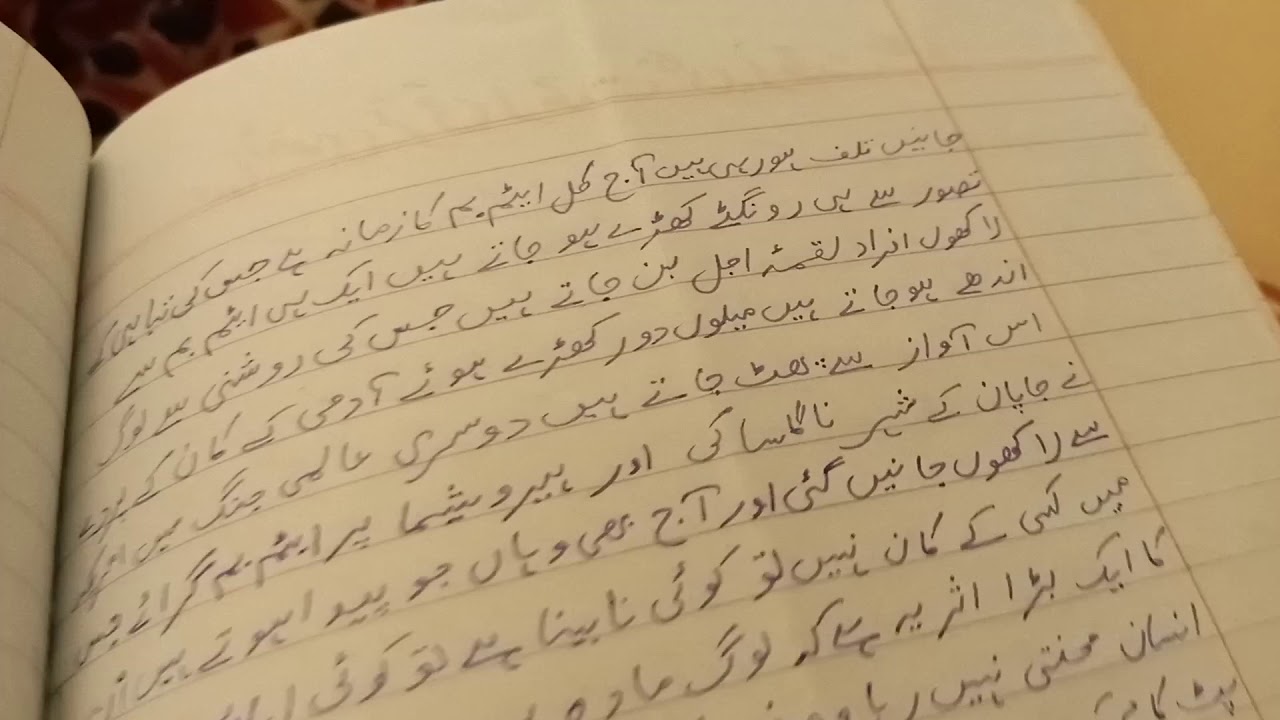 جانیں تلف ہورہی ہیں آج کل ایٹم بم کا زمانہ ہے جس کی تباہی کے
تصور سے ہی رونگٹے کھڑے ہو جاتے ہیں ایک ہی ایٹم بم سے
لاکھوں افراد لقمئہ اجل بن جاتے ہیں جس کی روشنی سے لوگ
اندھے ہوجاتے ہیں میلوں دور کھڑے ہوئے آدمی کے کان کے پردے
اس آواز سے پھٹ جاتے ہیں دوسری عالمی جنگ میں
نے جاپان کے شہر ناگاساکی اور ہیروشیما پر ایٹم بم گرائے جس
سے لاکھوں جانیں گئی اور آج بھی وہاں جو پیدا ہوتے ہیں ان
میں کسی کے کان نہیں تو کوئی نابینا ہے تو کوئی
کا ایک بڑا اثر یہ ہے کہ لوگ
انسان محنتی نہیں رہا